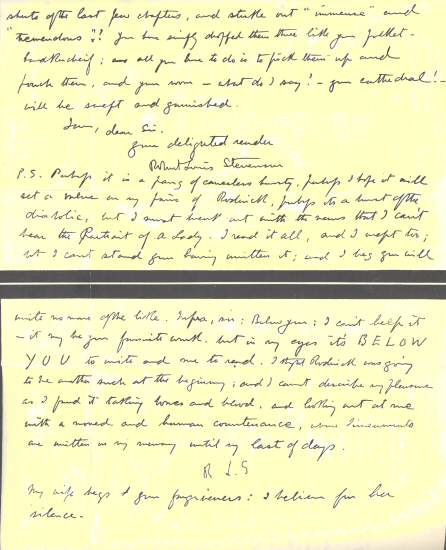 sheets of the last few chapters, and strike out "immense" and
"tremendous"? You have simply dropped them there like your pocket-
handkerchief; and all you have to do is to pick them up and
pouch them, and your room – what do I say? – your cathedral! –
will be swept and garnished.
I am, dear Sir.
your delighted reader
Robert Louis Stevenson
P.S. Perhaps it is a pang of causeless honesty, perhaps I hope it will
set a value on my praise of Roderick, perhaps it's a burst of the
diabolic, but I must break out with the news that I can't
bear the Portrait of a Lady. I read it all, and I wept too;
but I can't stand your having written it; and I beg you will
write no more of the like. Infra, sir: Below you: I can't help it
– it may be your favourite work, but in my eyes it's BELOW
YOU to write and me to read. I thought Roderick was going
to be another such at the beginning; and I cannot describe my pleasure
as I found it taking bones and blood, and looking out at me
with a moved and human countenance, whose lineaments
are written in my memory until my last of days.
R L S
My wife begs your forgiveness: I believe for her
silence.